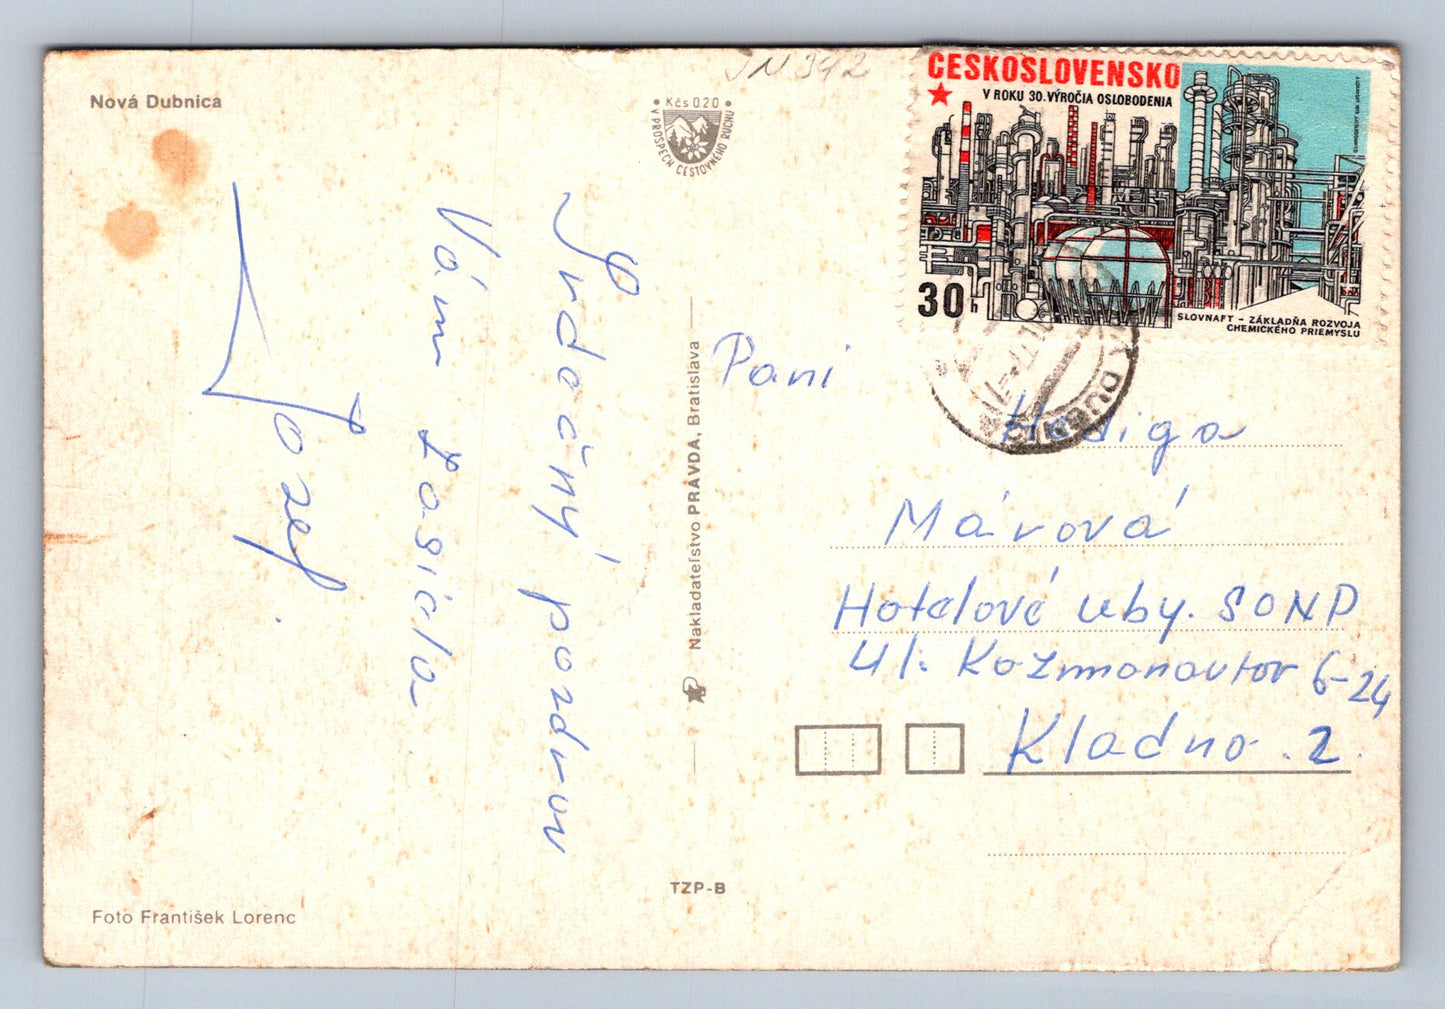 Nová Dubnica
JN 392
• Kčs 0.20 •
V PROSPECH CESTOVNÉHO RUCHU
ČESKOSLOVENSKO
V ROKU 30. VÝROČIA OSLOBODENIA
30 h
SLOVNAFT - ZÁKLADŇA ROZVOJA
CHEMICKÉHO PRIEMYSLU
Srdečný pozdrav
Vám
Jozef
Nakladateľstvo PRAVDA, Bratislava
Pani
Márová
Hotelové uby. SONP
Ul. Kozmonautov 6-24
Kladno 2.
TZP-B
Foto František Lorenc